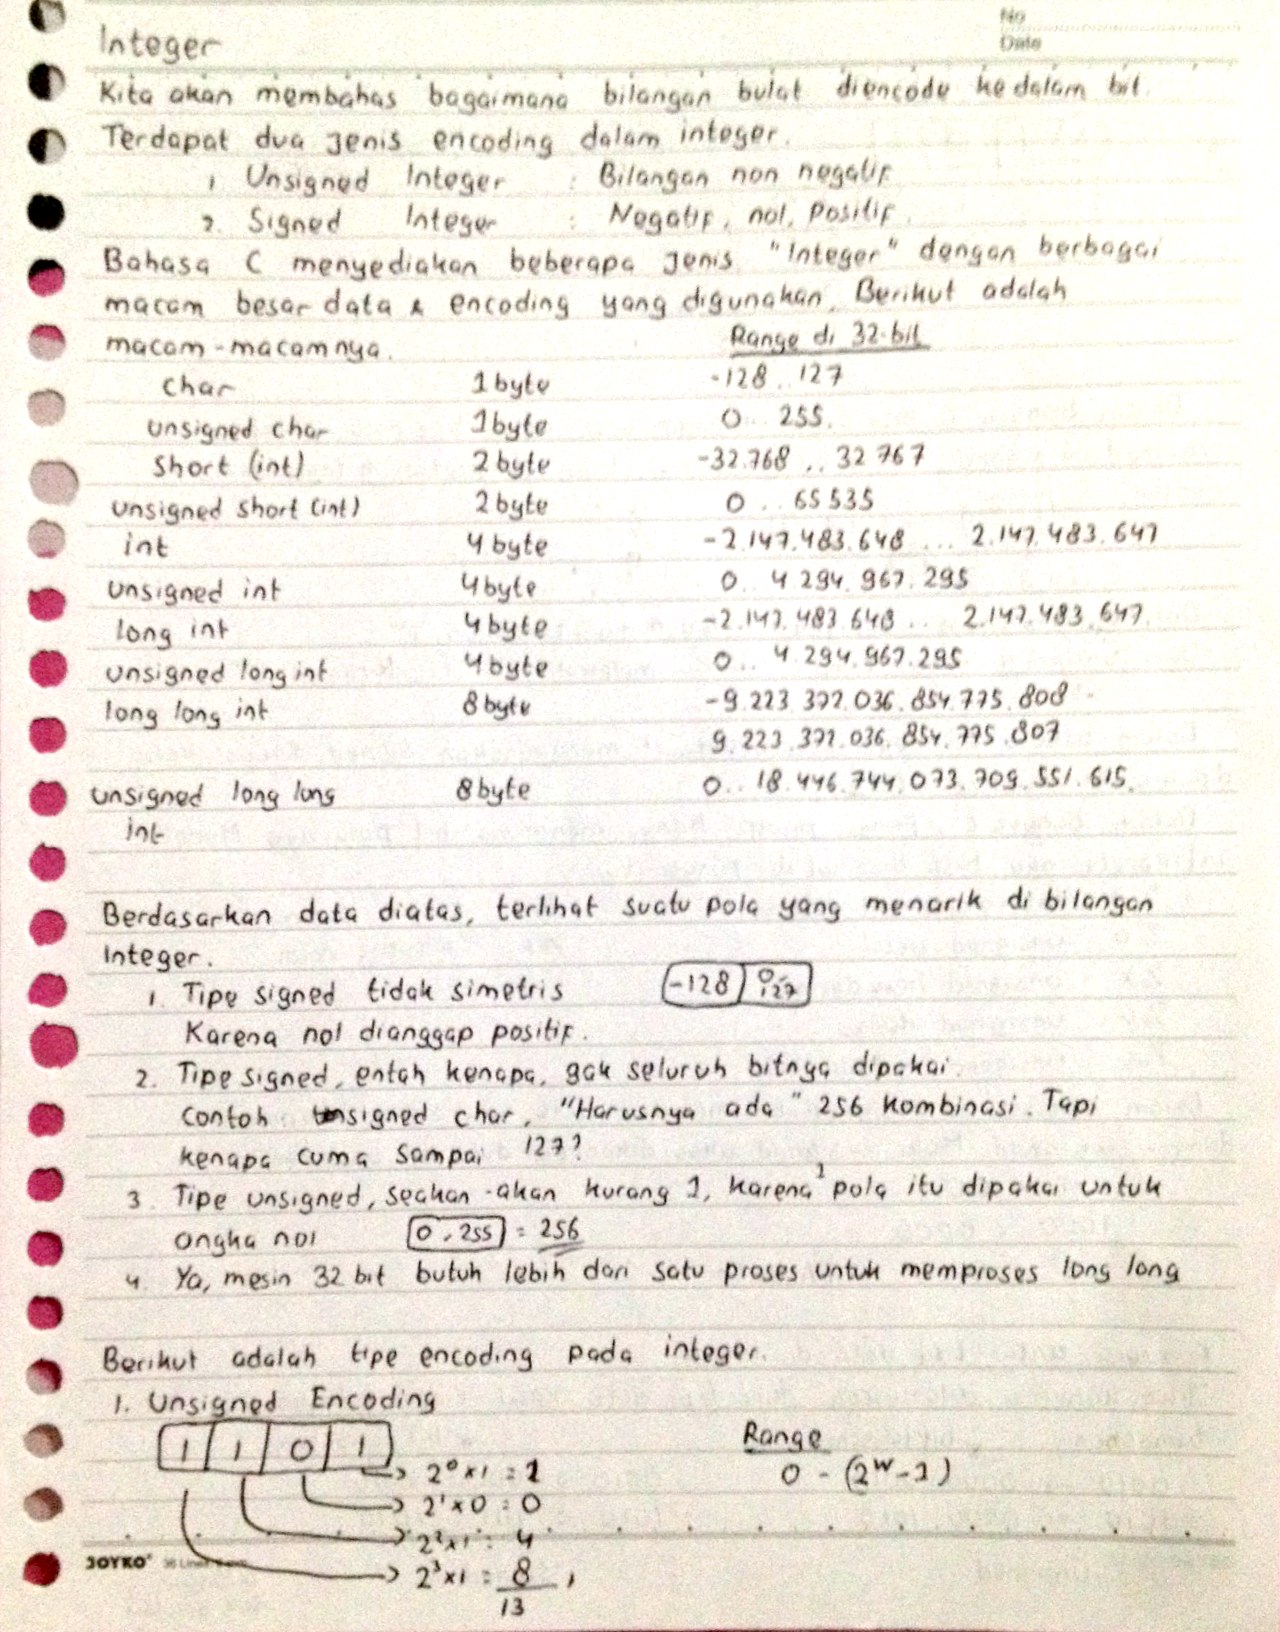 No
Date
Integer
Kita akan membahas bagaimana bilangan bulat diencode kedalam bit.
Terdapat dua jenis encoding dalam integer.
1. Unsigned Integer : Bilangan non negatif
2. Signed Integer : Negatif, nol, Positif.
Bahasa C menyediakan beberapa jenis "Integer" dengan berbagai
macam besar data & encoding yang digunakan. Berikut adalah
macam-macamnya. Range di 32-bit
char 1 byte -128 .. 127
unsigned char 1 byte 0 .. 255.
short (int) 2 byte -32.768 .. 32 767
unsigned short (int) 2 byte 0 .. 65535
int 4 byte -2.147.483.648 ... 2.147.483.647
unsigned int 4 byte 0.. 4 294.967.295
long int 4 byte -2.147.483.648 .. 2.147.483.647.
unsigned long int 4 byte 0.. 4 294.967.295
long long int 8 byte -9.223 372.036.854.775.808 -
9.223.372.036.854.775.807
unsigned long long 8 byte 0.. 18.446.744.073.709.551.615.
int
Berdasarkan data diatas, terlihat suatu pola yang menarik di bilangan
Integer.
1. Tipe signed tidak simetris -128 0-127
Karena nol dianggap positif.
2. Tipe signed, entah kenapa, gak seluruh bitnya dipakai.
contoh signed char, "Harusnya ada" 256 kombinasi. Tapi
kenapa cuma sampai 127?
3. Tipe unsigned, seakan-akan kurang 1, karena 1 pola itu dipakai untuk
angka nol 0..255 = 256
4. Ya, mesin 32 bit butuh lebih dari satu proses untuk memproses long long
Berikut adalah tipe encoding pada integer.
1. Unsigned Encoding
1 1 0 1 Range
2⁰ x 1 = 1 0 - (2ʷ-1)
2¹ x 0 = 0
2² x 1 = 4
2³ x 1 = 8
13
JOYKO